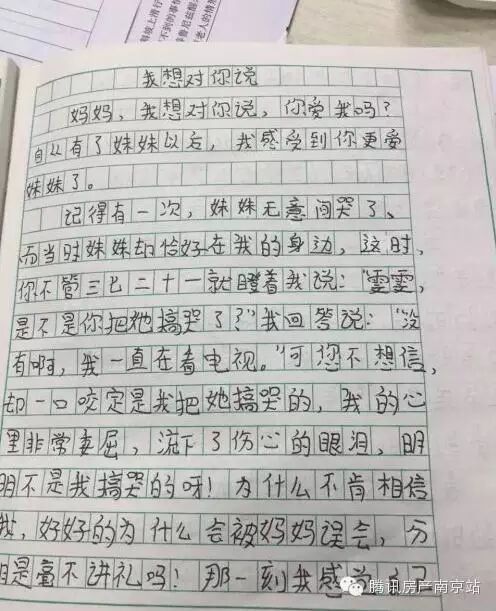 我想对你说
妈妈，我想对你说，你爱我吗？
自从有了妹妹以后，我感受到你更爱
妹妹了。
记得有一次，妹妹无意间哭了、
而当时妹妹却恰好在我的身边，这时，
你不管三七二十一就瞪着我说：“雯雯，
是不是你把她搞哭了？”我回答说：“没
有啊，我一直在看电视。”可您不想信，
却一口咬定是我把她搞哭的，我的心
里非常委屈，流下了伤心的眼泪，明
明不是我搞哭的呀！为什么不肯相信
我，好好的为什么会被妈妈误会，分
明是毫不讲礼吗！那一刻我感
腾讯房产南京站